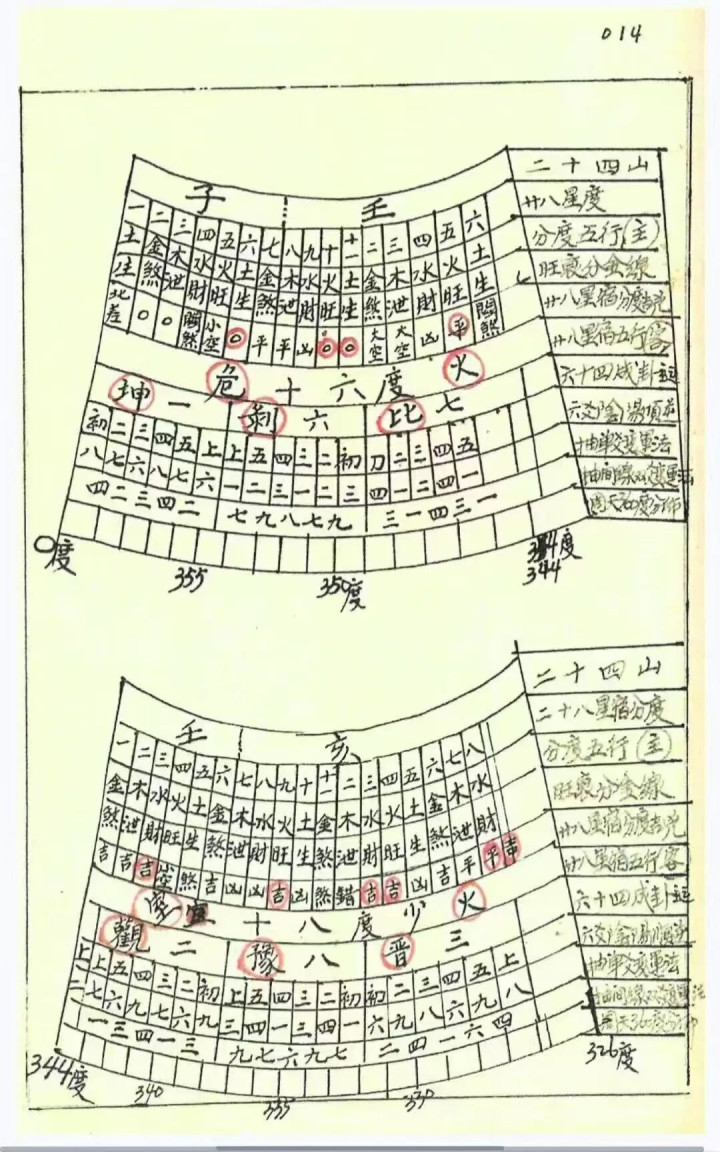 014
子 壬 二十四山
廿八星度
一 二 三 四 五 六 七 八 九 十 十一 二 三 四 五 六 分度五行(主)
土 金 木 水 火 土 金 木 水 火 土 金 木 水 火 土 旺衰分金線
生 煞 泄 財 旺 生 煞 泄 財 旺 生 煞 泄 財 旺 生 廿八星宿分度吉凶
北差 〇 〇 關煞 小空 〇 平 平 凶 〇 〇 大空 大空 凶 平 關煞 廿八星宿五行客
危十六度 火 六十四成卦運
坤一 剝六 比七
初 二 三 四 五 上 上 五 四 三 二 初 刀 二 三 四 五 抽單爻變運法
八 七 六 八 七 六 一 二 三 一 二 三 四 一 二 四 一
四 二 三 四 二 七 九 八 七 九 三 一 四 三 一
0度 355 350度 344度
344
壬 亥 二十四山
二十八星宿分度
一 二 三 四 五 六 七 八 九 十 十一 十二 三 四 五 六 七 八 分度五行(主)
金 木 水 火 土 金 木 水 火 土 金 木 水 火 土 金 木 水 旺衰分金線
煞 泄 財 旺 生 煞 泄 財 旺 生 煞 泄 財 旺 生 煞 泄 財 廿八星宿分度吉凶
吉 吉 吉 空 煞 吉 凶 凶 吉 凶 煞 錯 吉 吉 凶 吉 平 平 吉 廿八星宿五行客
室 十八度少 火 六十四成卦運
觀二 豫八 晋三
上 上 五 四 三 二 初 上 五 四 三 二 初 初 二 三 四 五 上 抽單爻變運法
二 七 六 九 七 六 九 三 四 一 三 四 一 六 九 八 六 九 八
一 三 四 一 三 九 七 六 九 七 二 四 一 六 四
344度 340 335 330 326度